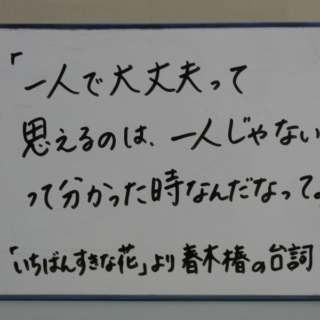 「一人で大丈夫って
思えるのは、一人じゃない
って分かった時なんだなって。
「いちばんすきな花」より 春木椿の台詞